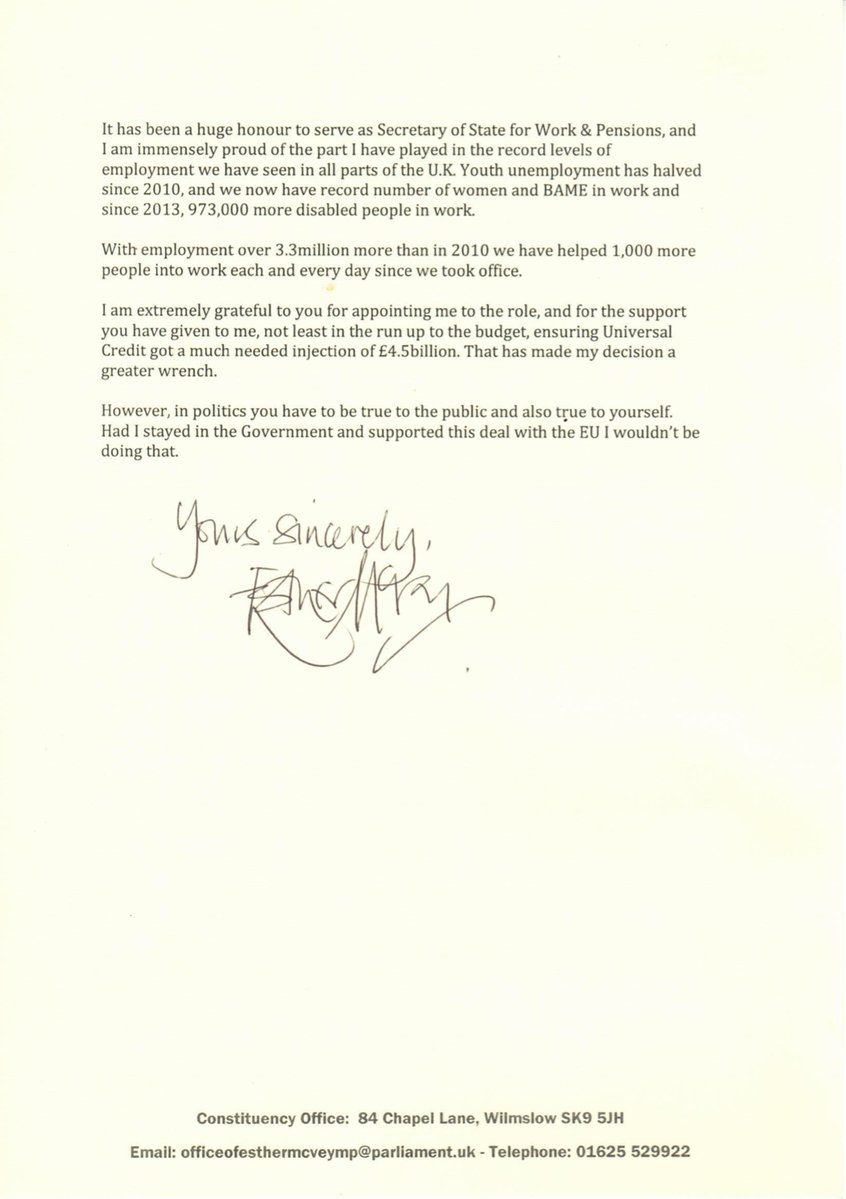 It has been a huge honour to serve as Secretary of State for Work & Pensions, and
I am immensely proud of the part I have played in the record levels of
employment we have seen in all parts of the U.K. Youth unemployment has halved
since 2010, and we now have record number of women and BAME in work and
since 2013, 973,000 more disabled people in work.
With employment over 3.3million more than in 2010 we have helped 1,000 more
people into work each and every day since we took office.
I am extremely grateful to you for appointing me to the role, and for the support
you have given to me, not least in the run up to the budget, ensuring Universal
Credit got a much needed injection of £4.5billion. That has made my decision a
greater wrench.
However, in politics you have to be true to the public and also true to yourself.
Had I stayed in the Government and supported this deal with the EU I wouldn't be
doing that.
Yours sincerely,
Esther McVey
Constituency Office: 84 Chapel Lane, Wilmslow SK9 5JH
Email: officeofesthermcveymp@parliament.uk - Telephone: 01625 529922